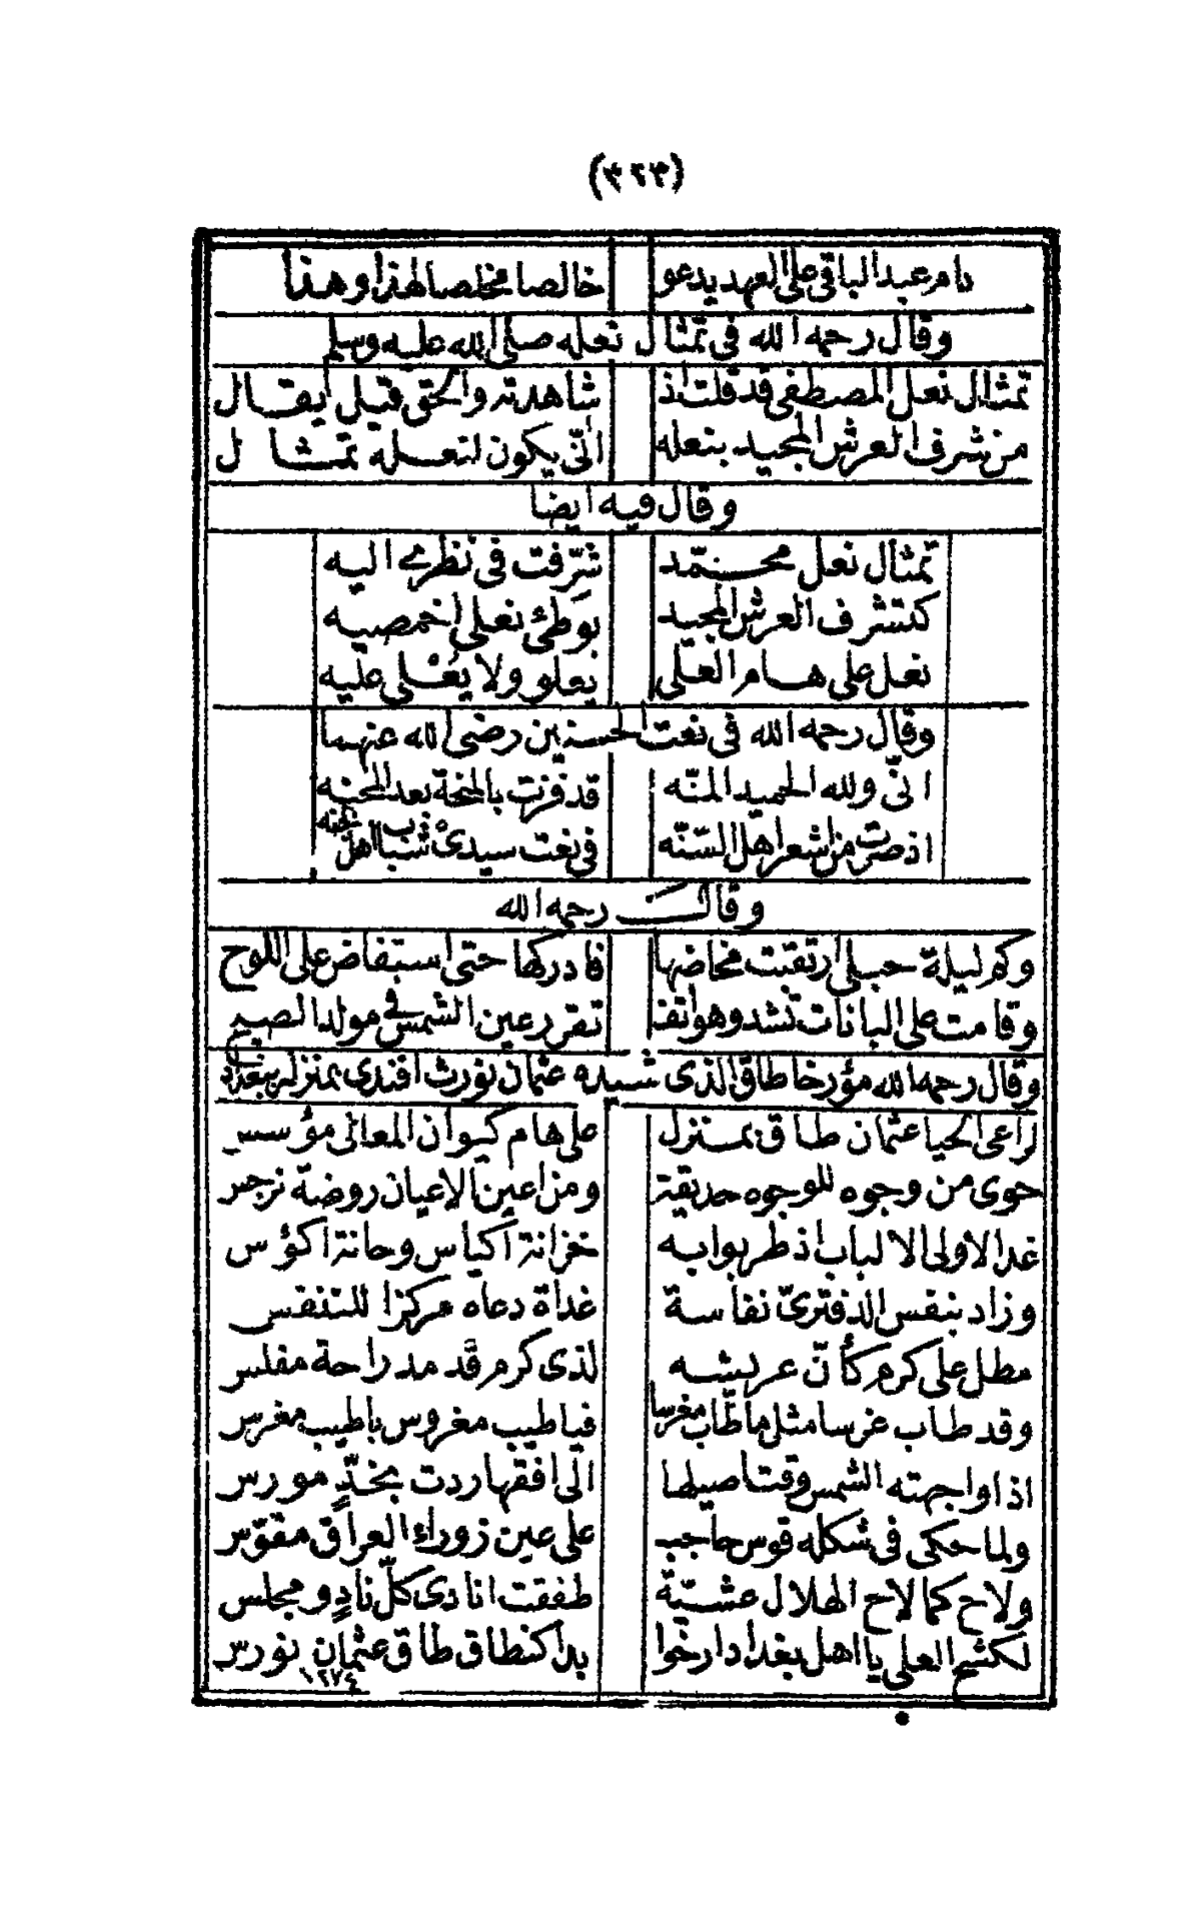 (٣٢٣)
دام عبد الباقي على العهد يدعو خالصا مخلصا لهذا وهذا
وقال رحمه الله في تمثال نعله صلى الله عليه وسلم
تمثال نعل المصطفى قد قلت اذ شاهدته والحق قيل يقال
من شرف العرش المجيد بنعله انّى يكون لنعله تمثال
وقال فيه ايضا
تمثال نعل محمّد شرّفت في نظري اليه
كتشرف العرش المجيد بوطئ نعلي اخمصيه
نعل على هام العلى يعلو ولا يعلى عليه
وقال رحمه الله في نعت الحسنين رضي الله عنهما
انّي ولله الحميد المنّه قد فزت بالمنحة بعد المحنه
اذ صرت من اشعر اهل السّنّه في نعت سيدي شباب اهل الجنه
وقال رحمه الله
وكم ليلة حبلى ارتقبت مخاضها فادركها حتى استفاض على اللوح
وقامت على البانات تشدو هواتف تقر عين الشمس في مولد الصبح
وقال رحمه الله مؤرخا طاق الذي شيده عثمان نورث افندي بمنزله ببغداد
لراعي الحيا عثمان طاق بمنزل على هام كيوان المعالي مؤسس
حوى من وجوه للوجوه حديقة ومن اعين الاعيان روضة نرجس
غدا لاولى الالباب اذ طربوا به خزانة اكياس وحانة اكؤس
وزاد بنفس الدفتريّ نفاسة غداة دعاه مركزا للتنفس
مطل على كرم كأنّ عريشه لذي كرم قد مد راحة مفلس
وقد طاب غرسا مثل ما طاب مغرسا فيا طيب مغروس باطيب مغرس
اذا واجهته الشمس وقت اصيلها الى افقها ردت بخدّ مورس
ولما حكى في شكله قوس حاجب على عين زوراء العراق مقوّس
ولاح كما لاح الهلال عشيّة طفقت انادي كلّ نادٍ ومجلس
لكشح العلى يا اهل بغداد ارخوا بدا كنطاق طاق عثمان نورس
١٢٧٤